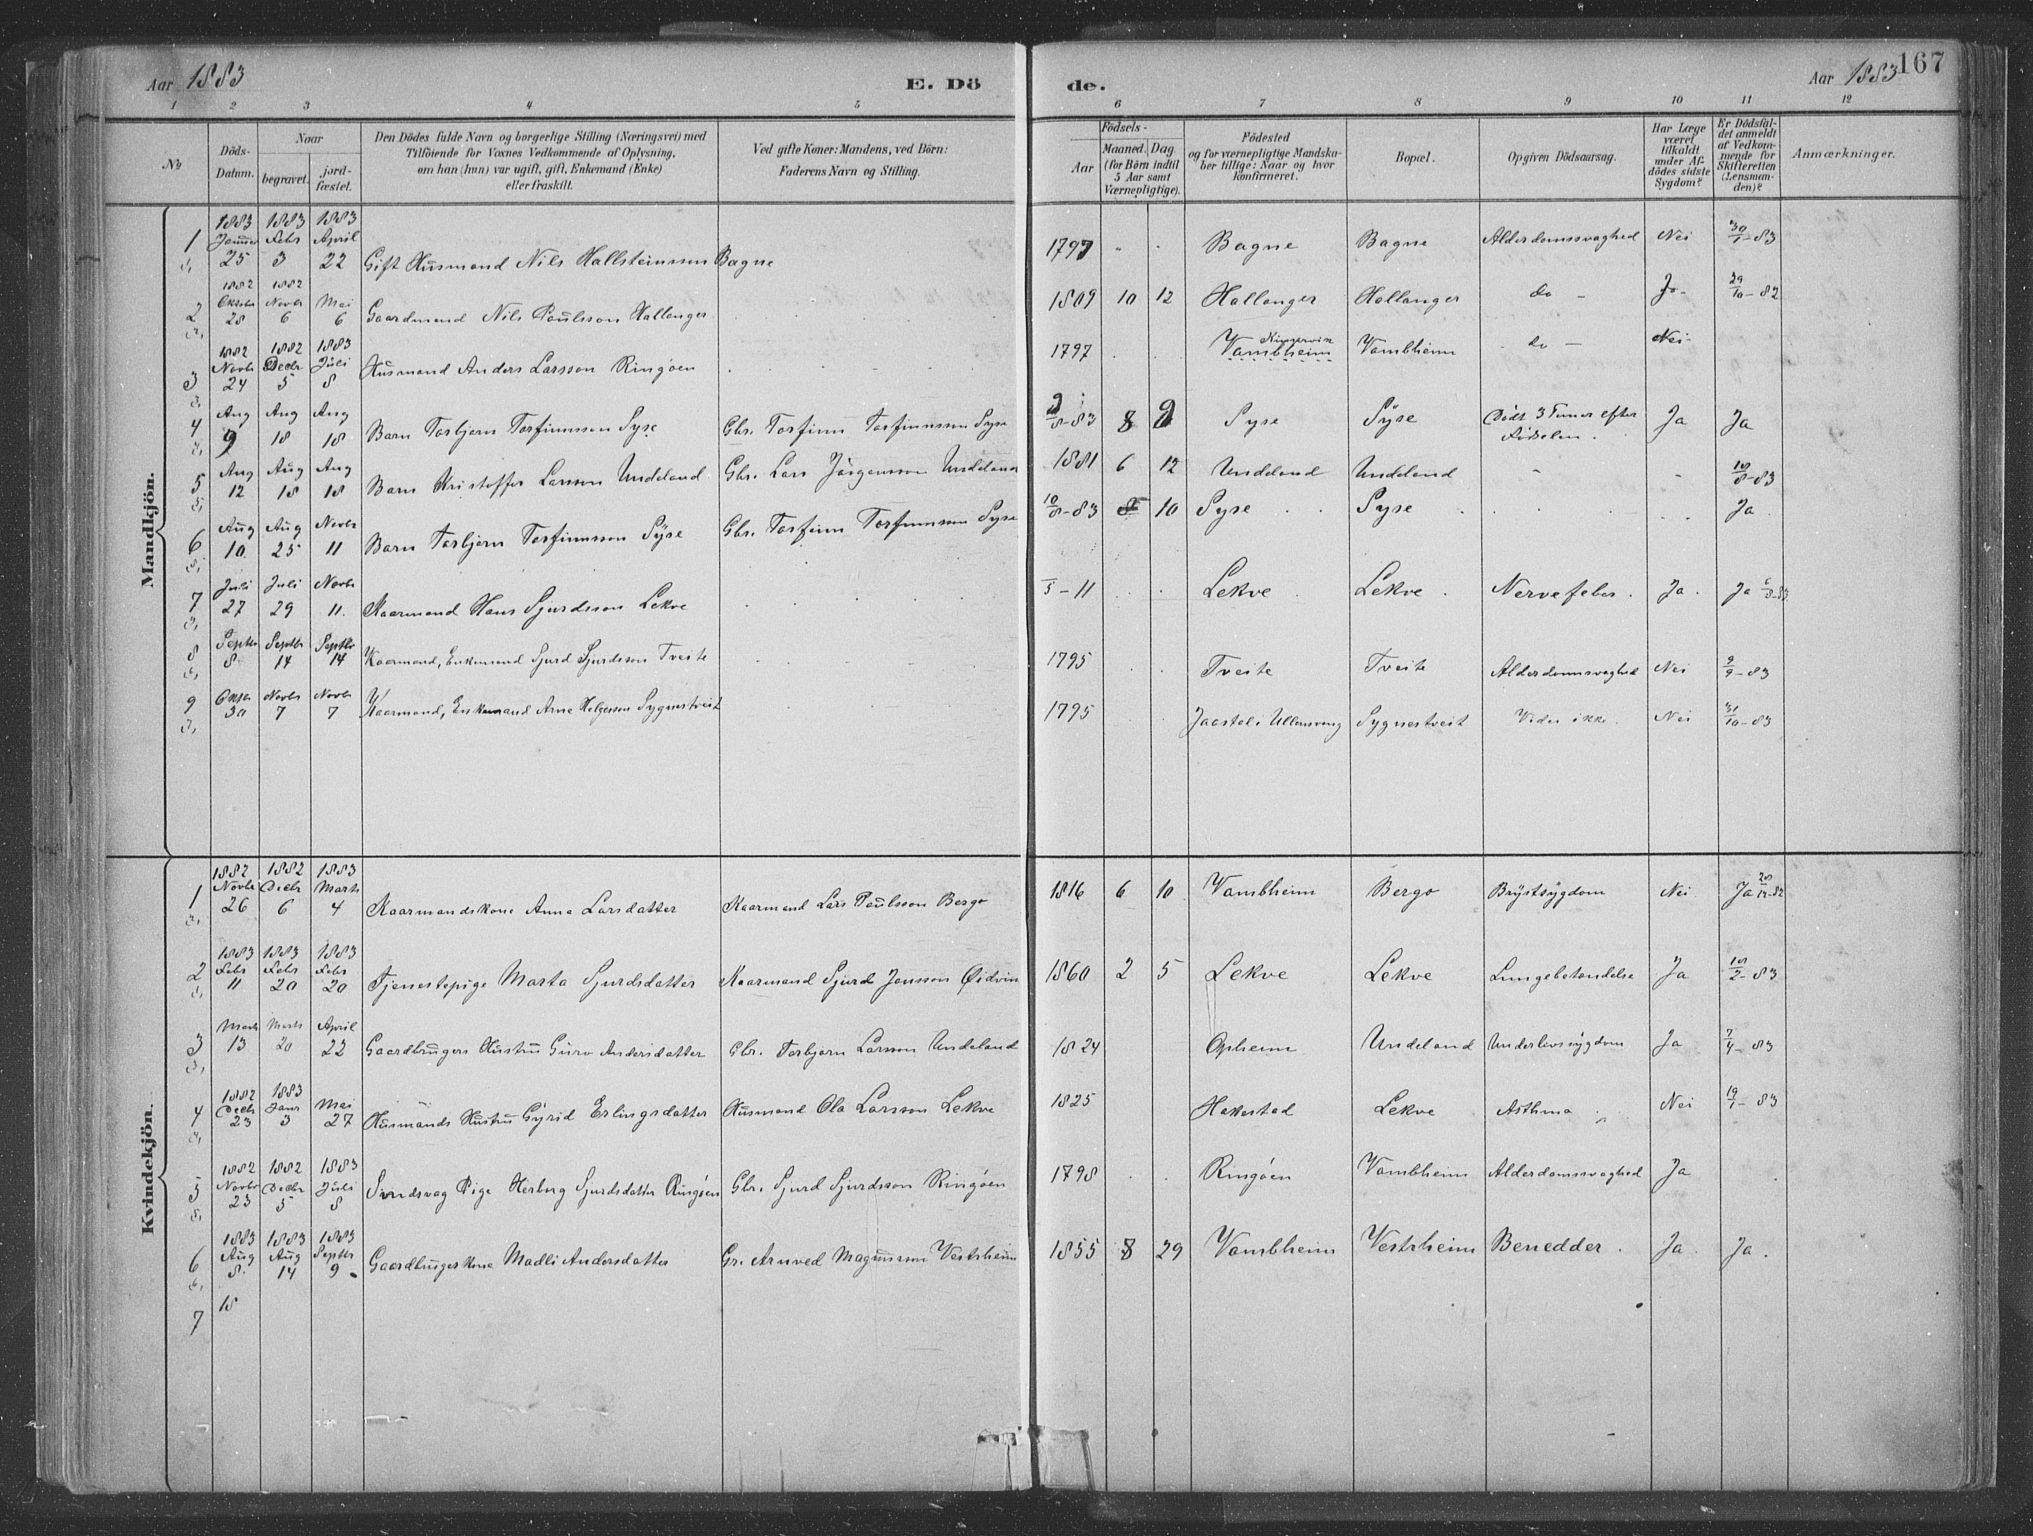 Aar 1883
E. Dö
de.
Aar 1883
167
1 2 3 4 5 6 7 8 9 10 11 12
No
Döds-Datum.
Naar
begravet.
jord-fæstet.
Den Dödes fulde Navn og borgerlige Stilling (Næringsvei) med
Tilföiende for Voxnes Vedkommende af Oplysning,
om han (hun) var ugift, gift, Enkemand (Enke)
eller fraskilt.
Ved gifte Koner: Mandens, ved Börn:
Faderens Navn og Stilling.
Födsels-
Aar
Maaned. Dag
(for Börn indtil
5 Aar samt
Værnepligtige).
Födested
og for værnepligtige Mandska-
ber tillige: Naar og hvor
konfirmeret.
Bopæl.
Opgiven Dödsaarsag.
Har Læge
været
tilkaldt
under Af-
dödes sidste
Sygdom?
Er Dödsfal-
det anmeldt
af Vedkom-
mende for
Skifteretten
(Lensman-
den)?
Anmærkninger.
Mandkjön.
1 1883 Januar 25 1883 Febr 3 1883 April 22 Gift Husmand Nils Hallsteinsson Bagne 1797 Bagne Bagne Alderdomssvaghed Nei 30/1-83
2 1882 Oktober 28 1882 Novbr 6 Mai 6 Gaardmand Nils Paulsson Hallanger 1809 10 12 Hallanger Hallanger do - Ja - 29/10-82
3 1882 Novbr 24 1882 Decbr 5 1883 Juli 8 Husmand Anders Larsson Ringøen 1797 Vambheim Vambheim do - Nei -
4 Aug 9 Aug 18 Aug 18 Barn Torbjørn Torfinnsson Syse Gbr. Torfinn Torfinnsson Syse 9/8-83 8 9 Syse Syse Dødt 3 Timer efter Fødselen. Ja Ja
5 Aug 12 Aug 18 Aug 18 Barn Kristoffer Larsson Undeland Gbr. Lars Jørgensson Undeland 1881 6 12 Undeland Undeland - - 18/8-83
6 Aug 10 Aug 25 Novbr 11 Barn Torbjørn Torfinnsson Syse Gbr. Torfinn Torfinnsson Syse 10/8-83 8 10 Syse Syse Ja
7 Juli 27 Juli 29 Novbr 11. Kaarmand Hans Sjurdsson Lekve -11 Lekve Lekve Nervefeber. Ja. Ja
8 Septbr 8 Septbr 14 Septbr 14 Kaarmand, Enkemand Sjurd Sjurdsson Tveite 1795 Tveite Tveite Alderdomssvaghed Nei 9/9-83
9 Oktbr 30 Novbr 7 Novbr 7 Kaarmand, Enkemand Arne Helgesson Sygnestveit 1795 Jaastad i Ullensvang Sygnestveit Vides ikke. Nei 31/10-83
Kvindekjön.
1 1882 Novbr 26 1882 Decbr 6 1883 Marts 4 Kaarmandskone Anna Larsdatter Kaarmand Lars Paulsson Bergo 1816 6 10 Vambheim Bergo Brystsygdom Nei Ja
2 1883 Febr 11 1883 Febr 20 1883 Febr 20 Tjenestepige Marta Sjurdsdatter Kaarmand Sjurd Jonsson Øidvin 1860 2 5 Lekve Lekve Lungebetændelse Ja 18/2-83
3 Marts 13 Marts 20 April 22 Gaardbrugers Hustru Guro Andersdatter Gbr. Torbjørn Larsson Undeland 1824 Opheim Undeland Underlivssygdom Ja 7/4-83
4 1882 Decbr 23 1883 Janr 3 Mai 27 Husmands Hustru Gyrid Erlingsdatter Husmand Ola Larsson Lekve 1825 Hakestad Lekve Asthma Nei 19/1-83
5 1882 Novbr 23 1882 Decbr 5 1883 Juli 8 Sindsvag Pige Herborg Sjurdsdatter Ringøen Gbr. Sjurd Sjurdsson Ringøen 1798 Ringøen Vambheim Alderdomssvaghed Ja
6 1883 Aug 8. 1883 Aug 14 1883 Septbr 9 Gaardbrugerskone Madli Andersdatter Gr. Arnved Magnusson Vestrheim 1855 8 29 Vambheim Vestrheim Benedder. Ja Ja.
7 18